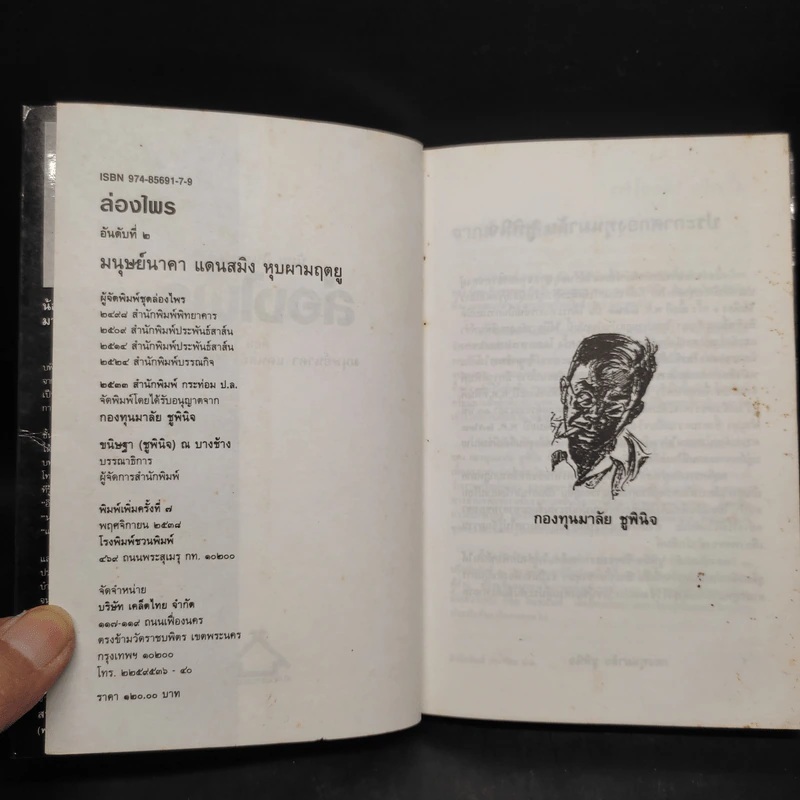 ISBN 974-85691-7-9
ล่องไพร
อันดับที่ ๒
มนุษย์นาคา แดนสมิง หุบผามฤตยู
ผู้จัดพิมพ์ชุดล่องไพร
๒๔๙๘ สำนักพิมพ์พิทยาคาร
๒๕๐๙ สำนักพิมพ์ประพันธ์สาส์น
๒๕๑๔ สำนักพิมพ์ประพันธ์สาส์น
๒๕๒๔ สำนักพิมพ์บรรณกิจ
๒๕๓๓ สำนักพิมพ์ กระท่อม ป.ล.
จัดพิมพ์โดยได้รับอนุญาตจาก
กองทุนมาลัย ชูพินิจ
ขนิษฐา (ชูพินิจ) ณ บางช้าง
บรรณาธิการ
ผู้จัดการสำนักพิมพ์
พิมพ์เพิ่มครั้งที่ ๗
พฤศจิกายน ๒๕๓๘
โรงพิมพ์ชวนพิมพ์
๔๖๙ ถนนพระสุเมรุ กท. ๑๐๒๐๐
จัดจำหน่าย
บริษัท เคล็ดไทย จำกัด
๑๑๗-๑๑๙ ถนนเฟื่องนคร
ตรงข้ามวัดราชบพิตร เขตพระนคร
กรุงเทพฯ ๑๐๒๐๐
โทร. ๒๒๕๙๕๓๖ - ๔๐
ราคา ๑๒๐.๐๐ บาท
กองทุนมาลัย ชูพินิจ